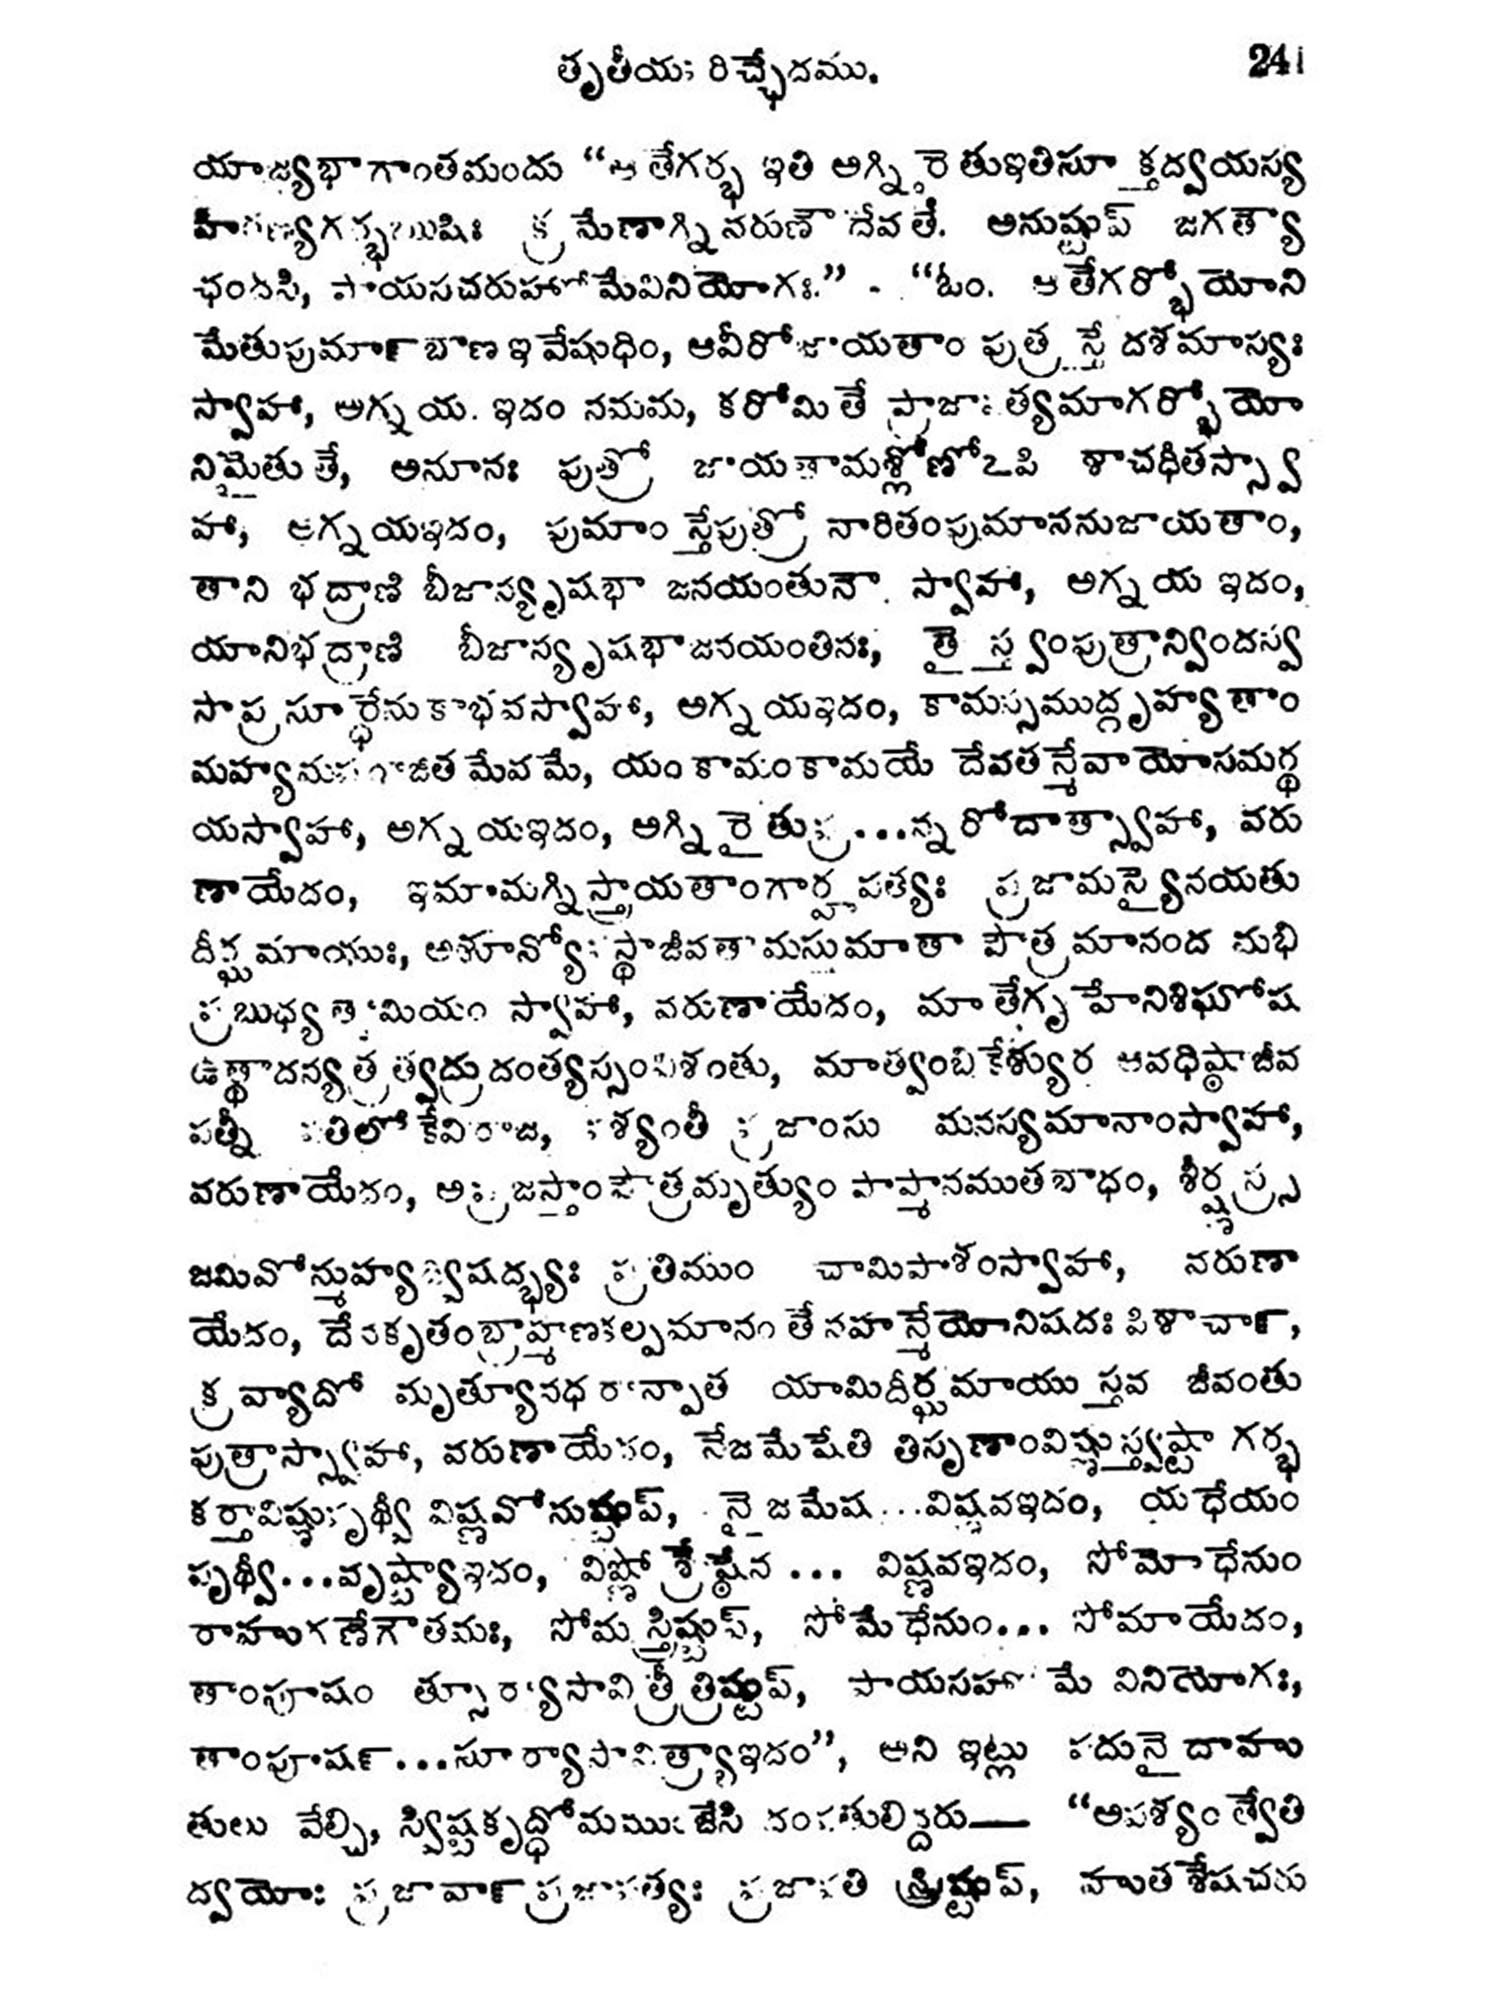 తృతీయః రిచ్ఛేదము. 241
యాజ్యభాగాంతమందు “ఆ తేగర్భ ఇతి అగ్ని రై తుఇతిసూ క్తద్వయస్య
క్ర మేణాగ్ని వరుణౌ దేవతే. అనుష్టుప్ జగత్యౌ
ఛందసి, పాయసచరుహోమేవినియోగః.” - “ఓం. ఆ తేగర్భో యోని
మేతుపుమాన్ బాణ ఇ వేషుధిం, ఆవీరోజాయతాం పుత్ర స్తే దశమాస్యః
స్వాహా, అగ్న య. ఇదం నమమ, కరోమి తే ప్రాజా త్యమాగర్భో యో
నిమైతు తే, అనూనః పుత్రో జాయతామశ్లోణోఽపి శాచధీతస్స్వా
హా, అగ్నయఇదం, పుమాం స్తేపుత్రో నారితంపుమాననుజాయతాం,
తాని భద్రాణి బీజాన్యృషభా జనయంతునౌ. స్వాహా, అగ్న య ఇదం,
యానిభద్రాణి బీజాన్యృషభాజనయంతినః, తై స్త్వంపుత్రాన్విందస్వ
సాప్రసూర్ధేనుకాభవస్వాహా, అగ్న యఇదం, కామస్సముద్గృహ్యతాం
మేవమే, యం కామంకామయే దేవతన్మేవాయోసమర్థ
యస్వాహా, అగ్న యఇదం, అగ్ని రై తుప్ర...న్న రోదాత్స్వాహా, వరు
ణాయేదం, ఇమామగ్నిస్త్రాయతాంగార్హపత్యః ప్రజామస్యైనయతు
దీర్ఘమాయుః, అశూన్యో స్థాజీవతామస్తుమాతా పౌత్రమానంద మభి
ప్రబుధ్య తామియం స్వాహా, వరుణాయేదం, మా తేగృహేనిశిఘోష
ఉత్థాదన్యత్ర త్వద్రుదంత్యస్సంవిశంతు, మాత్వంబికేశ్యుర ఆవధిష్ఠాజీవ
పత్నీ పతిలోకేవిరాజ, పశ్యంతీ ప్రజాంసు మనస్యమానాంస్వాహా,
వరుణాయేదం, అప్రజస్తాంపౌత్రమృత్యుం పాప్మానముతవాధం, శీర్ష్ణస్స్ర
జమివోన్ముహ్య ద్విషద్భ్యః ప్రతిముం చామిపాశంస్వాహా, వరుణా
యేదం, దేవకృతంబ్రాహ్మణకల్పమానం తేనహన్మేయోనిషదః పిశాచాన్,
క్రవ్యాదో మృత్యూనధరాన్పాత యామిదీర్ఘమాయు స్తవ జీవంతు
పుత్రాస్స్వాహా, వరుణాయేదం, నేజమేషేతి తిసృణాంవిష్ణుస్త్వష్టా గర్భ
కర్తావిష్ణుఃపృథ్వీ విష్ణవోనుష్టుప్, నై జమేష...విష్ణవఇదం, యథేయం
పృథ్వీ...వృష్ట్యాఇదం, విష్ణో శ్రేష్ఠేన ... విష్ణవఇదం, సోమోధేనుం
రాహుగణేగౌతమః, సోమ స్త్రిష్టుప్, సోమేధేనుం... సోమాయేదం,
తాంపూషం త్సూర్యాసావిత్రీత్రిష్టుప్, పాయసహోమే వినియోగః,
తాంపూషన్...సూర్యాసావిత్ర్యాఇదం”, అని ఇట్లు పదునై దాహు
తులు వేల్చి, స్విష్టకృద్ధోమముఁజేసి దంపతులిద్దరు— “అపశ్యం త్వేతి
ద్వయోః ప్రజావాన్ ప్రజాపత్యః ప్రజాపతి స్త్రిష్టుప్, హుతశేషచరు